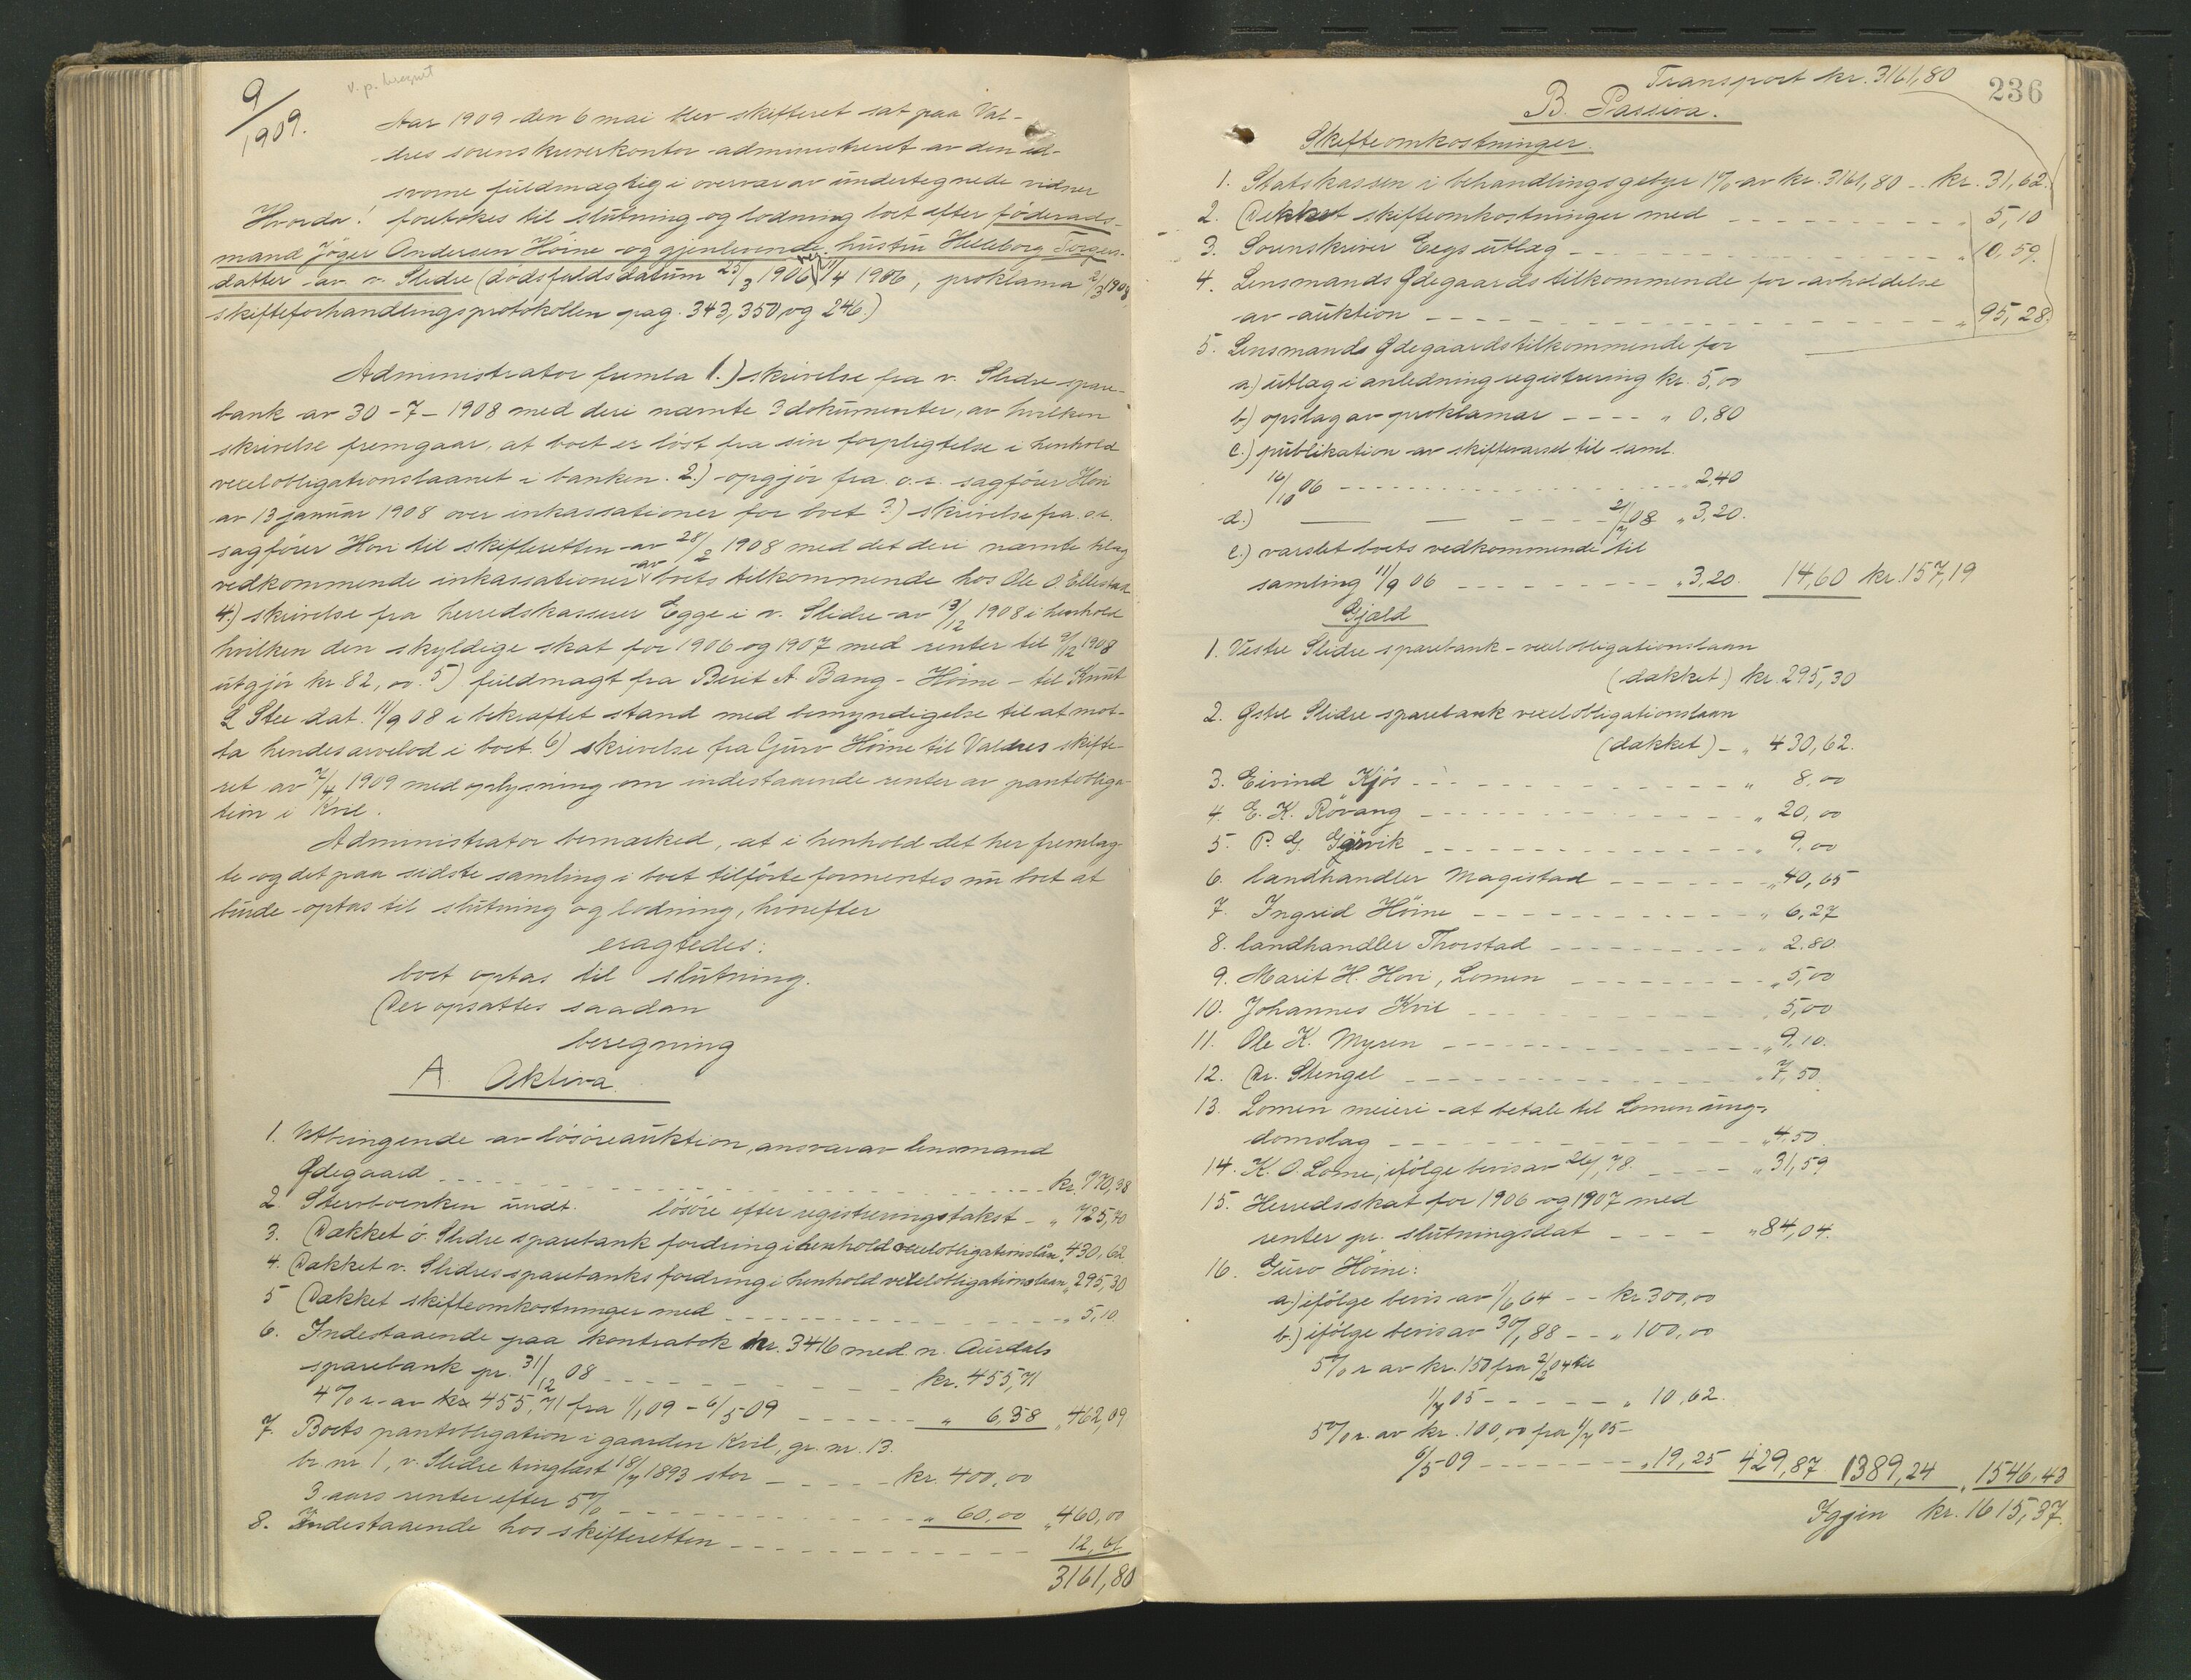 9/1909.
Aar 1909 den 6 mai blev skifteret sat paa Val-
dres sorenskriverkontor administreret av den ed-
svorne fuldmægtig i overvær av undertegnede vidner
Hvorda! foretokes til slutning og lodning boet efter föderaads-
mand Jöger Andersen Höine og gjenlevende hustru Hilleborg Torgers-
datter av v. Slidre (dödsfaldsdatum 25/3 1906, reg. 11/4 1906, proklama 2/3 1908
skifteforhandlingsprotokollen pag. 343, 350 og 246.)
Administrator fremla 1.) skrivelse fra v. Slidre spare-
bank av 30-7-1908 med deri nævnte 3 dokumenter, av hvilken
skrivelse fremgaar, at boet er löst fra sin forpligtelse i henhold
vexelobligationslaanet i banken. 2.) opgjör fra o.r. sagförer Hovi
av 13 januar 1908 over inkassationer for boet 3) skrivelse fra o.r.
sagförer Hovi til skifteretten av 28/2 1908 med det deri nævnte bilag
vedkommende inkassationer av boets tilkommende hos Ole O. Ellestad
4.) skrivelse fra herredskasserer Egge i v. Slidre av 13/12 1908 i henhold
hvilken den skyldige skat for 1906 og 1907 med renter til 9/12 1908
utgjör kr 82,00. 5) fuldmagt fra Berit A. Bang - Höine - til Knut
L Stee dat. 11/9 08 i bekræftet stand med bemyndigelse til at mot-
ta hendes arvelod i boet. 6) skrivelse fra Guro Höine til Valdres skifte-
ret av 7/4 1909 med oplysning om indestaaende renter av pantobliga-
tion i Kvil.
Administrator bemærked, at i henhold det her fremlag-
te og det paa sidste samling i boet tilförte formentes nu boet at
burde optas til slutning og lodning, hvorefter
eragtedes:
boet optas til slutning.
Der opsattes saadan
beregning
A. Aktiva.
1. Utbringende av lösöreauktion, ansvar av lensmand
Ödegaard kr. 770,38
2. Stervboenken undt. lösöre efter registreringstakst - " 725,70
3. Dækket ö. Slidre sparebank fordring i henhold vexelobligationslån " 430,62
4. Dækket v. Slidres sparebanks fordring i henhold vexelobligationslaan " 295,30
5 Dækket skifteomkostninger med " 5,10.
6. Indestaaende paa kontrabok nr. 3416 med n. Aurdals
sparebank pr. 31/12 08 kr. 455,71
4% r. av kr 455,71 fra 1/1 09 - 6/5 09 " 6,38 " 462,09
7. Boets pantobligation i gaarden Kvil, gr. nr. 13.
br. nr 1, v. Slidre tinglæst 18/7 1893 stor kr. 400,00
3 aars renter efter 5% " 60,00 " 460,00
8. Indestaaende hos skifteretten 12,61
3161,80
236
Transport kr. 3161,80
B. Passiva.
Skifteomkostninger.
1. Statskassen i behandlingsgebyr 1% av kr. 3161,80 - kr. 31,62.
2. Dækket skifteomkostninger med " 5,10
3. Sorenskriver Eegs utlæg " 10,59.
4. Lensmands Ödegaards tilkommende for avholdelse
av auktion " 95,28.
5. Lensmands Ödegaards tilkommende for
a.) utlæg i anledning registrering kr. 5,00
b) opslag av proklamar " 0,80
c.) publikation av skiftevarsel til saml.
16/10 06 " 2,40
d.) — — — 21/7 08 " 3,20.
e.) varslet boets vedkommende til
samling 11/9 06 " 3,20. 14,60 kr. 157,19
Gjæld
1. Vestre Slidre sparebank - vexelobligationslaan
(dækket) kr. 295,30
2. Östre Slidre sparebank vexelobligationslaan
(dækket) - " 430,62.
3. Eivind Kjös " 8,00
4. E. K. Rövang " 20,00
5. P. G. Gjörvik " 9,00
6. landhandler Magistad " 40,65
7. Ingrid Höine " 6,27
8. landhandler Thorstad " 2,80
9. Marit H. Hovi, Lomen " 5,00
10. Johannes Kvil " 5,00
11. Ole K. Myren " 9,10.
12. Dr. Stengel " 7,50
13. Lomen meieri - at betale til Lomen ung-
domslag " 4,50.
14. K. O. Lome, ifölge bevis av 26/1 78 " 31,59
15. Herredsskat for 1906 og 1907 med
renter pr. slutningsdat " 84,04.
16. Guro Höine:
a.) ifölge bevis av 1/6 64 - - kr 300,00
b.) ifölge bevis av 30/1 88 - - " 100,00
5% r av kr. 150 fra 2/2 04 til
1/7 05 " 10,62.
5% r. av kr. 100,00 fra 1/7 05 -
6/5 09 " 19,25 429,87 1389,24 " 1546,43
Igjen kr. 1615,37.